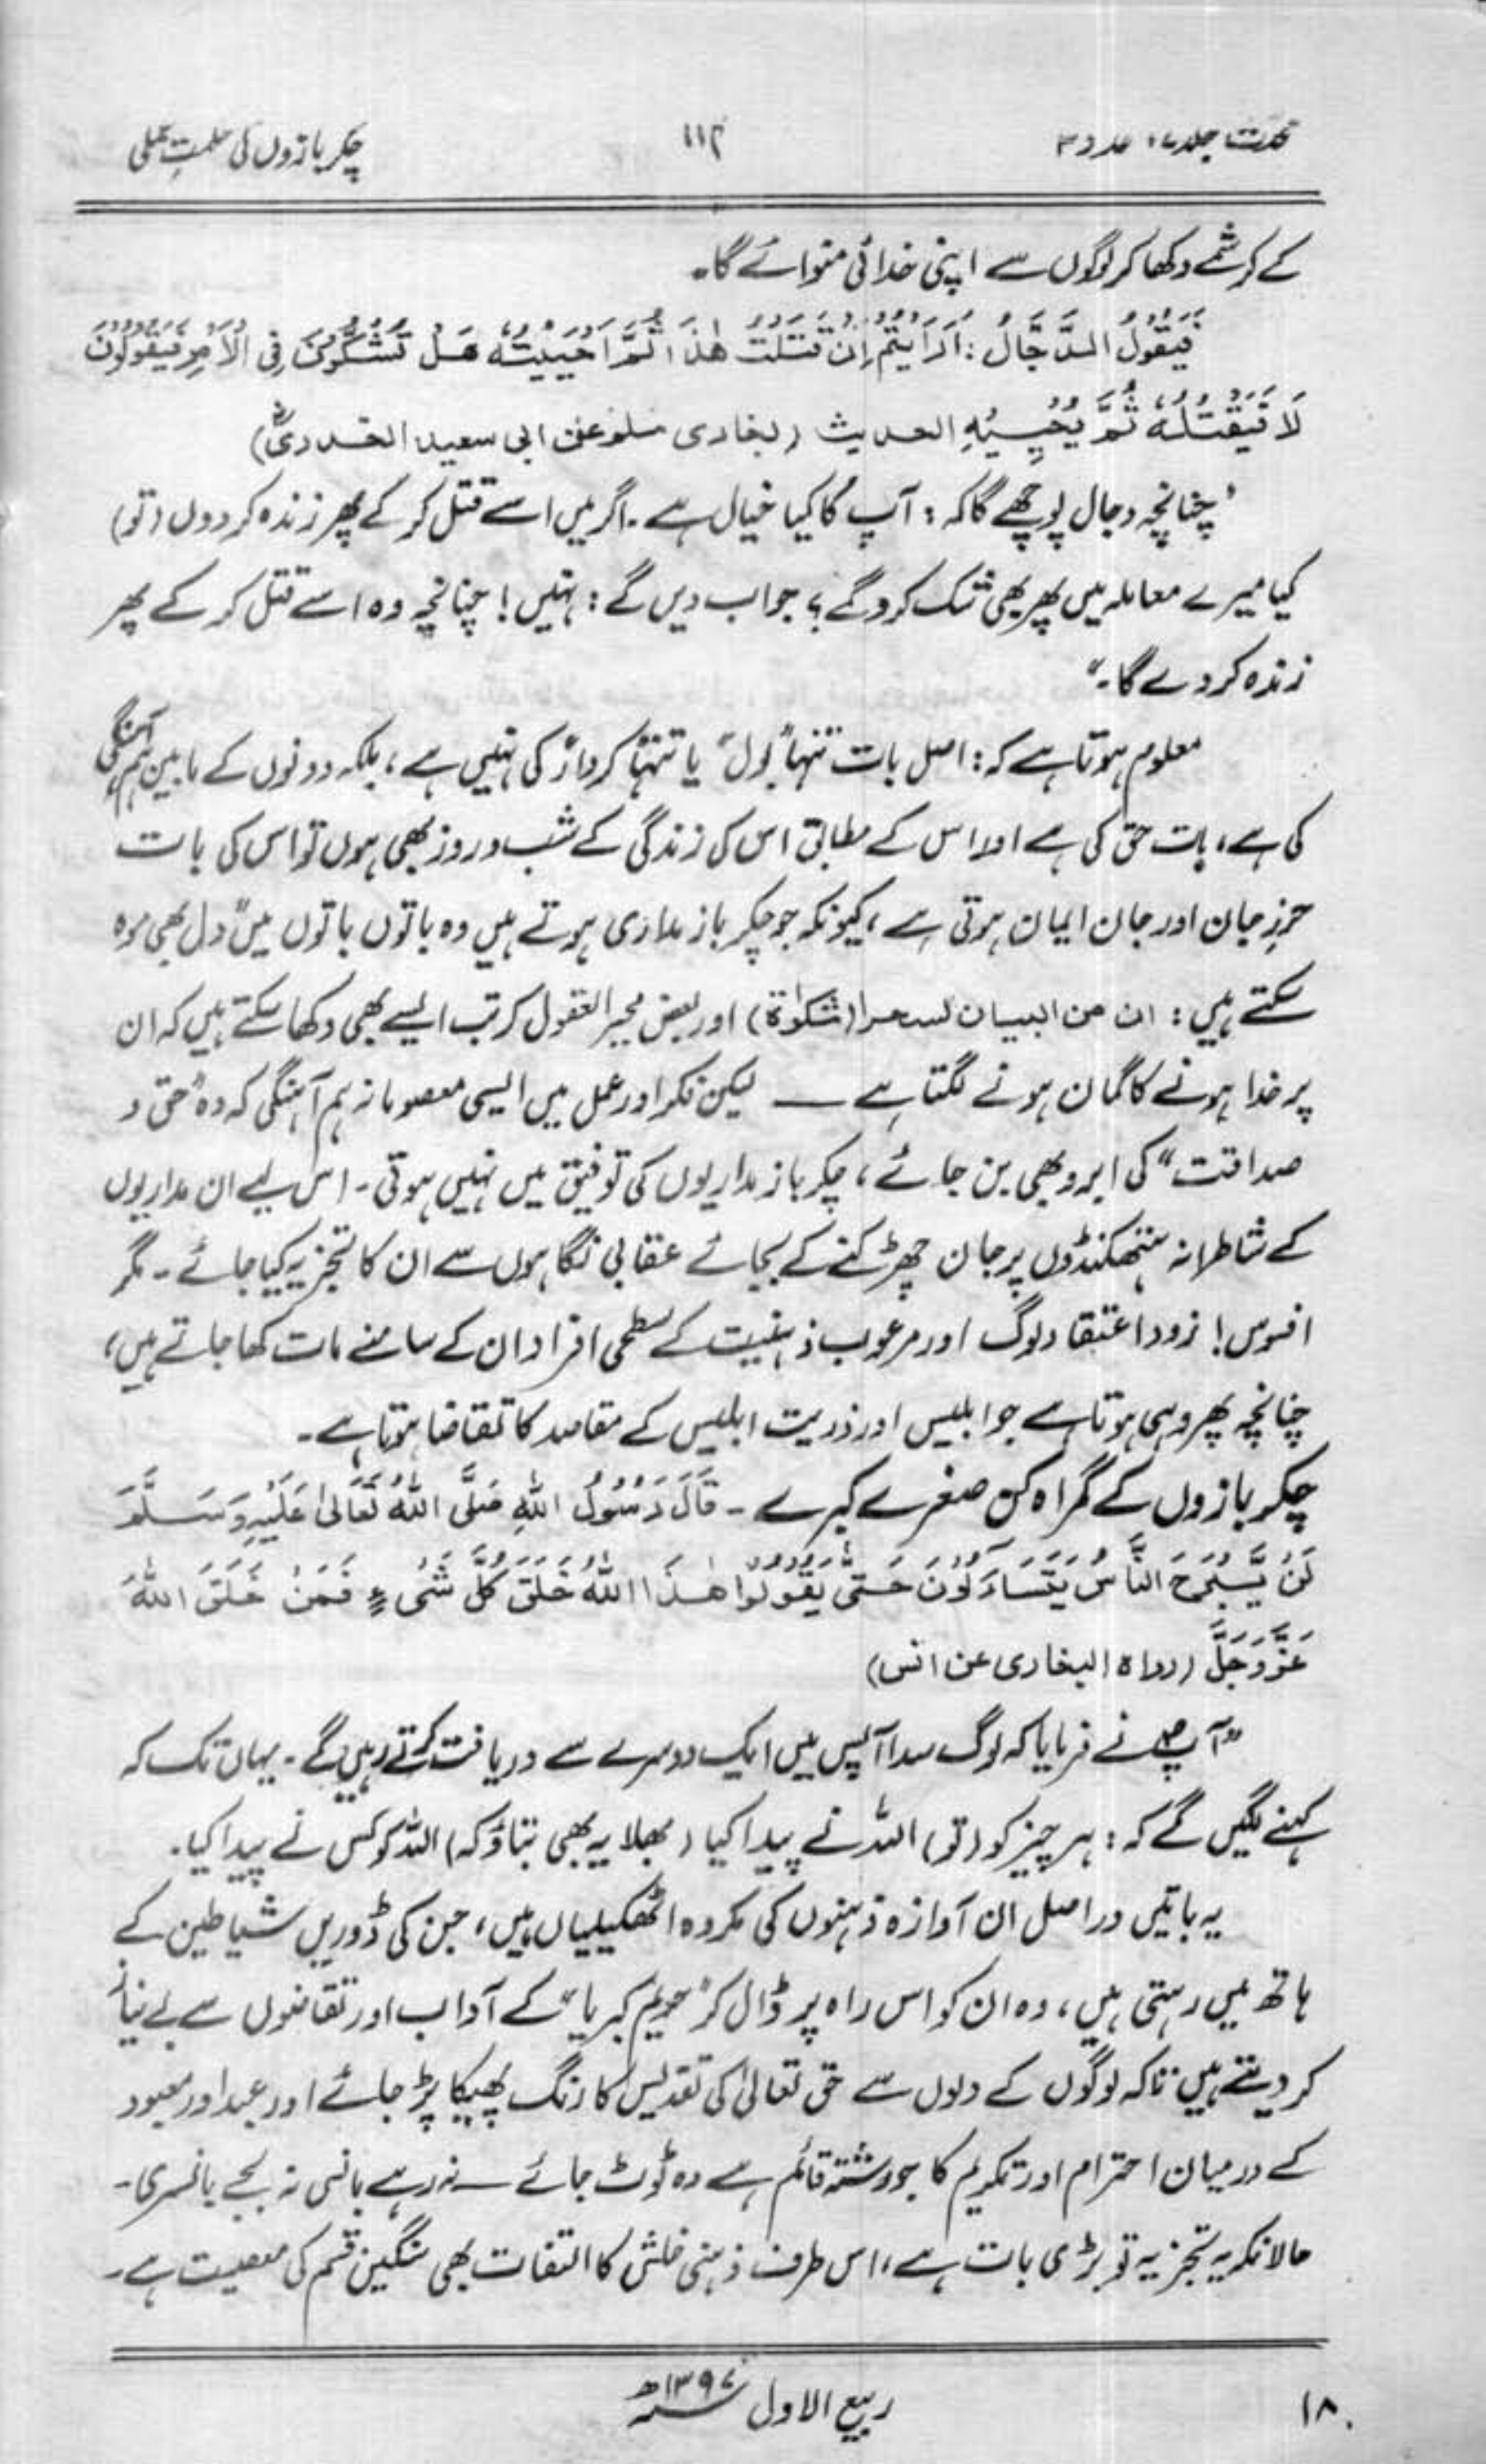 محدث جلد ۷، عدد ۳
۱۱۲
چکر بازوں کی حکمتِ عملی
کے کرشمے دکھا کر لوگوں سے اپنی خدائی منوائے گا۔
فَيَقُوْلُ الدَّجَّالُ: اَرَاَيْتُمْ اِنْ قَتَلْتُ هٰذَا ثُمَّ اَحْيَيْتُهٗ هَلْ تَشُكُّوْنَ فِي الْاَمْرِ فَيَقُوْلُوْنَ
لَا فَيَقْتُلُهٗ ثُمَّ يُحْيِيْهِ الحديث (بخاری مسلم عن ابی سعید الخدریؓ)
’چنانچہ دجال پوچھے گا کہ: آپ کا کیا خیال ہے۔ اگر میں اسے قتل کر کے پھر زندہ کر دوں (تو)
کیا میرے معاملہ میں پھر بھی شک کرو گے؟ جواب دیں گے: نہیں! چنانچہ وہ اسے قتل کر کے پھر
زندہ کر دے گا۔“
معلوم ہوتا ہے کہ: اصل بات تنہا ”بول“ یا تنہا ”کردار“ کی نہیں ہے، بلکہ دونوں کے مابین ہم آہنگی
کی ہے، بات حق کی ہے اور اس کے مطابق اس کی زندگی کے شب و روز بھی ہوں تو اس کی بات
حرزِ جان اور جان ایمان ہوتی ہے، کیونکہ جو چکر باز مداری ہوتے ہیں وہ باتوں باتوں میں ”دل بھی موہ
سکتے ہیں: ان من البیان لسحرا (مشکوٰۃ) اور بعض محیر العقول کرتب ایسے بھی دکھا سکتے ہیں کہ ان
پر خدا ہونے کا گمان ہونے لگتا ہے ــــ لیکن فکر اور عمل میں ایسی معصومانہ ہم آہنگی کہ وہ ”حق و
صداقت“ کی ابرو بھی بن جائے، چکر باز مداریوں کی توفیق میں نہیں ہوتی۔ اس لیے ان مداریوں
کے شاطرانہ ہتھکنڈوں پر جان چھڑکنے کے بجائے عقابی نگاہوں سے ان کا تجزیہ کیا جائے۔ مگر
افسوس! زود اعتقاد لوگ اور مرعوب ذہنیت کے سطحی افراد ان کے سامنے مات کھا جاتے ہیں،
چنانچہ پھر وہی ہوتا ہے جو ابلیس اور ذریت ابلیس کے مقاصد کا تقاضا ہوتا ہے۔
چکر بازوں کے گمراہ کن صغرے کبرے۔ قَالَ رَسُوْلُ اللهِ صَلَّى اللهُ تَعَالٰى عَلَيْهِ وَسَلَّمَ
لَنْ يَّبْرَحَ النَّاسُ يَتَسَاءَلُوْنَ حَتّٰى يَقُوْلُوْا هٰذَا اللهُ خَلَقَ كُلَّ شَيْءٍ فَمَنْ خَلَقَ اللهَ
عَزَّوَجَلَّ (رواہ البخاری عن انس)
”آپؐ نے فرمایا کہ لوگ سدا آپس میں ایک دوسرے سے دریافت کرتے رہیں گے۔ یہاں تک کہ
کہنے لگیں گے کہ: ہر چیز کو (تو) اللہ نے پیدا کیا (بھلا یہ بھی بتاؤ کہ) اللہ کو کس نے پیدا کیا۔
یہ باتیں دراصل ان آوازہ ذہنوں کی مکروہ اٹھکیلیاں ہیں، جن کی ڈوریں شیاطین کے
ہاتھ میں رہتی ہیں، وہ ان کو اس راہ پر ڈال کر ”حریم کبریا“ کے آداب اور تقاضوں سے بے نیاز
کر دیتے ہیں تاکہ لوگوں کے دلوں سے حق تعالیٰ کی تقدیس کا رنگ پھیکا پڑ جائے اور عبد اور معبود
کے درمیان احترام اور تکریم کا جو رشتہ قائم ہے وہ ٹوٹ جائے ــ نہ رہے بانس نہ بجے بانسری۔
حالانکہ یہ تجزیہ تو بڑی بات ہے، اس طرف ذہنی خلش کا التفات بھی سنگین قسم کی معصیت ہے۔
ربیع الاول ۱۳۹۷ھ
۱۸